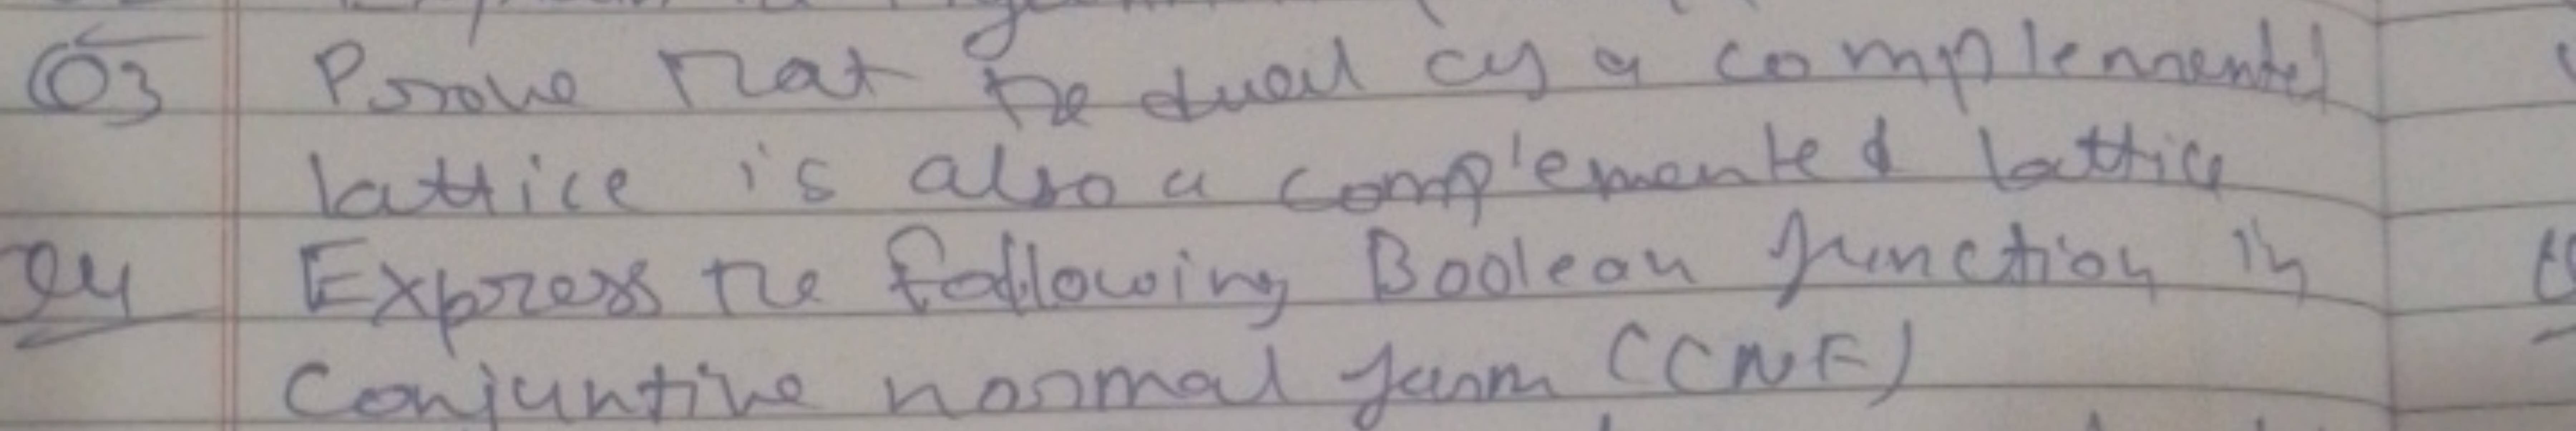 Q3 Prove that the dual of a complemented
lattice is also a complemented lattice
Q4 Express the following Boolean function in
Conjuntive normal form (CNF)